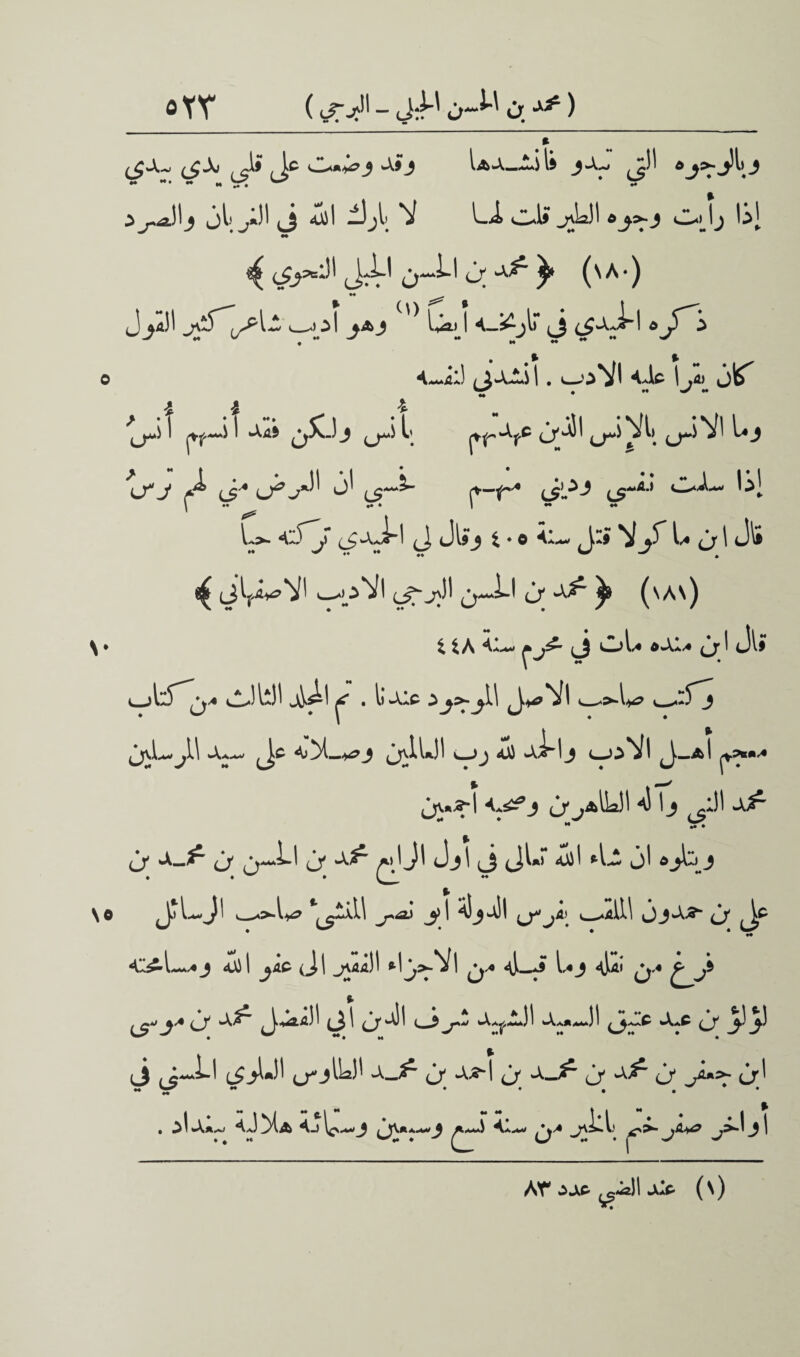 ( محمد بن الحسن الجبلي - الرجي ) ٥٢٣
وبالوجوه التي تدور فانشدها وقد وضعت على قلبي يدي بيدي
إذا رأيت وجوه الطير قلت لها لا بارك الله في الغربان والصرد
(١٨٠) ﴿ محمد بن الحسن الجبلي النحوي ﴾
ذكره الحميدي في تاريخه أيضا (١) وهو أديب شاعر كثير القول
كان يقرأ عليه الأدب . أنشدني لنفسه
وما الأنس بالأنس الذين عهدتهم بأنس ولكن فقد أنسهم أنس
إذا سلمت نفسي وديني منهم فحسبي ان العرض مني لهم ترس
قال ابن ماكولا قتل سنة ٤٥٠ وقال في الحميدي تركته حيا
(١٨١) ﴿ محمد بن الحسن الرجي الأديب الأصفهاني ﴾
قال ابن منده مات في محرم سنة ٤٤٨
وكتب صاحب الأصل الموجود عندنا . تم المجلد الثالث من كتاب
معجم أهل الأدب والحمد لله رب العالمين وصلاته على سيد المرسلين
محمد النبي وآله الطاهرين وصحبه أجمعين
ويتلوه ان شاء الله تعالى في أول الرابع محمد بن الحسن بن محمد بن
علي بن حمدون الملقب بهاء الدولة أو نصر المنشئ صاحب الرسائل
فرغ من نقله وما قبله من الأجزاء الفقير إلى عفو الله ومسامحته
لزيز بن عبد عتيق السعيد الشهيد شرف الدين ابي الفضل محمد بن موسى
ابن جعفر بن محمد بن محمد بن أحمد بن محمد الطاوس العلوي الحسني في
أواخر صفر ختم بالخير من سنة تسع وسبعين وستمائة هلالية ببغداد .
(١) عند الضبي عدد ٨٣